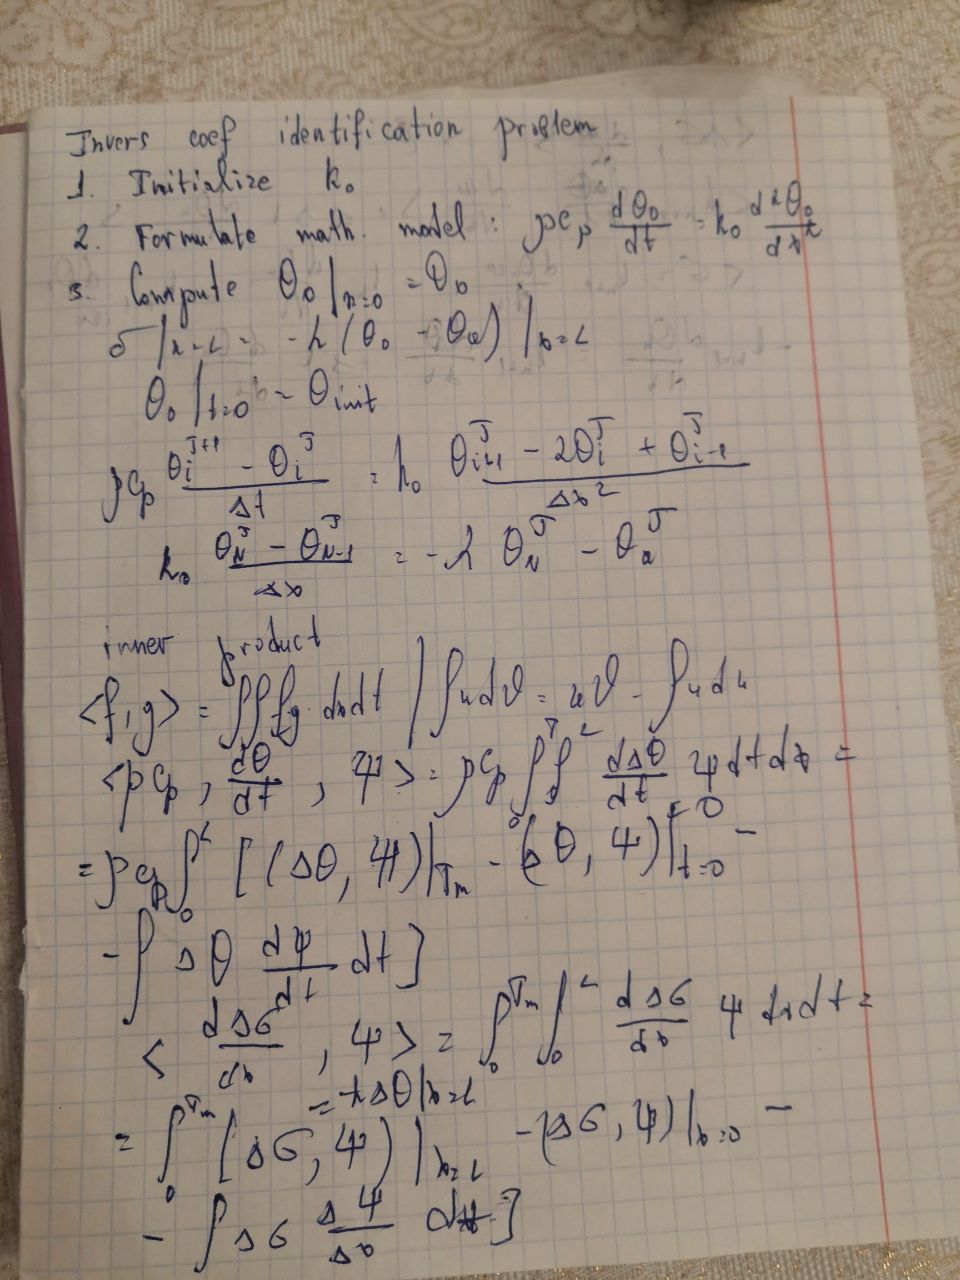 Invers coef identification problem
1. Initialize k₀
2. Formulate math. model: ρc_p dθ₀/dt = k₀ d²θ₀/dx²
3. Compute θ₀|x=0 = θ_b
σ|x=L = -h(θ₀ - θ_a)|x=L
θ₀|t=0 = θ_init
ρc_p (θ_i^{J+1} - θ_i^J)/Δt = k₀ (θ_{i+1}^J - 2θ_i^J + θ_{i-1}^J)/Δx²
k₀ (θ_N^J - θ_{N-1}^J)/Δx = -h θ_N^J - θ_a^J
inner product
<f, g> = ∫∫ fg dxdt | ∫u dϑ = uϑ - ∫u du
<ρc_p, dθ/dt, ψ> = ρc_p ∫₀^T ∫^L dΔθ/dt ψ dt dx =
= ρc_p ∫₀^L [(Δθ, ψ)|_{T_m} - (Δθ, ψ)|_{t=0} = 0 -
- ∫ Δθ dψ/dt dt]
< dΔσ/dx, ψ > = ∫₀^{T_m} ∫₀^L dΔσ/dx ψ dx dt =
= -hΔθ|x=L
= ∫₀^{T_m} [Δσ, ψ)|x=L - (Δσ, ψ)|x=0 -
- ∫ Δσ Δψ/Δx